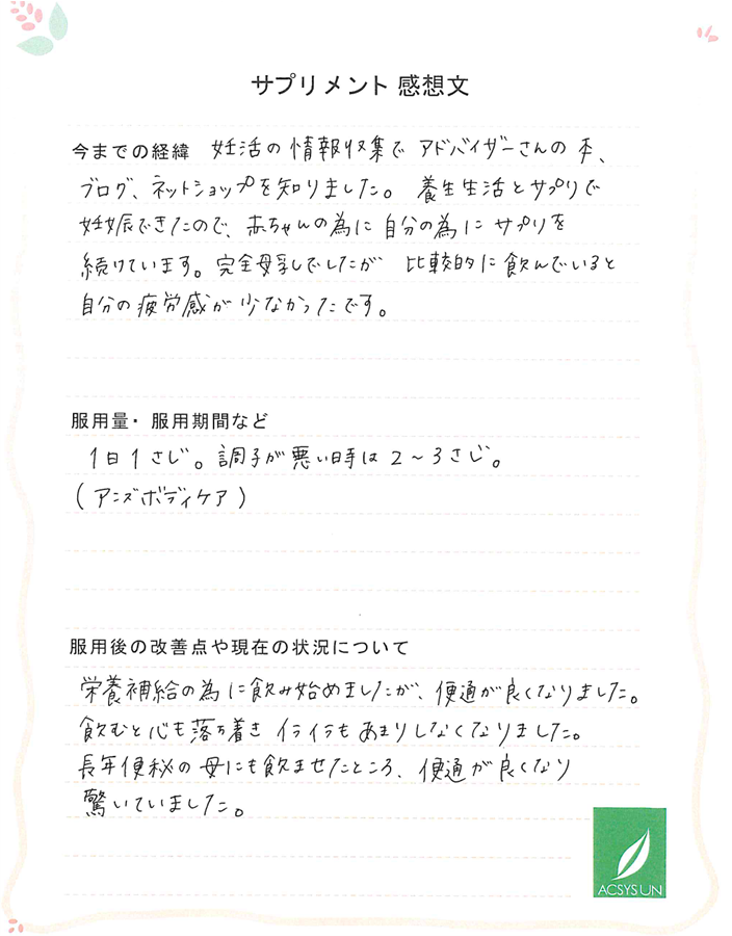 サプリメント 感想文
今までの経緯 妊活の情報収集で アドバイザーさんの 本、
ブログ、ネットショップを知りました。 養生生活とサプリで
妊娠できたので、赤ちゃんの為に 自分の為に サプリを
続けています。完全母乳でしたが 比較的に飲んでいると
自分の疲労感が少なかったです。
服用量・服用期間など
1日1さじ。調子が悪い時は 2～3さじ。
(アニズボディケア)
服用後の改善点や現在の状況について
栄養補給の為に飲み始めましたが、便通が良くなりました。
飲むと心も落ち着き イライラもあまりしなくなりました。
長年便秘の母にも飲ませたところ、便通が良くなり
驚いていました。
ACSYSUN